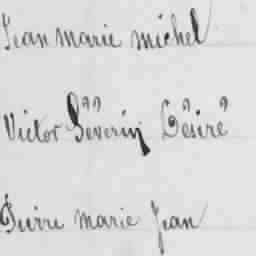 Jean marie michel
Victor Séverin Désiré
Pierre marie Jean